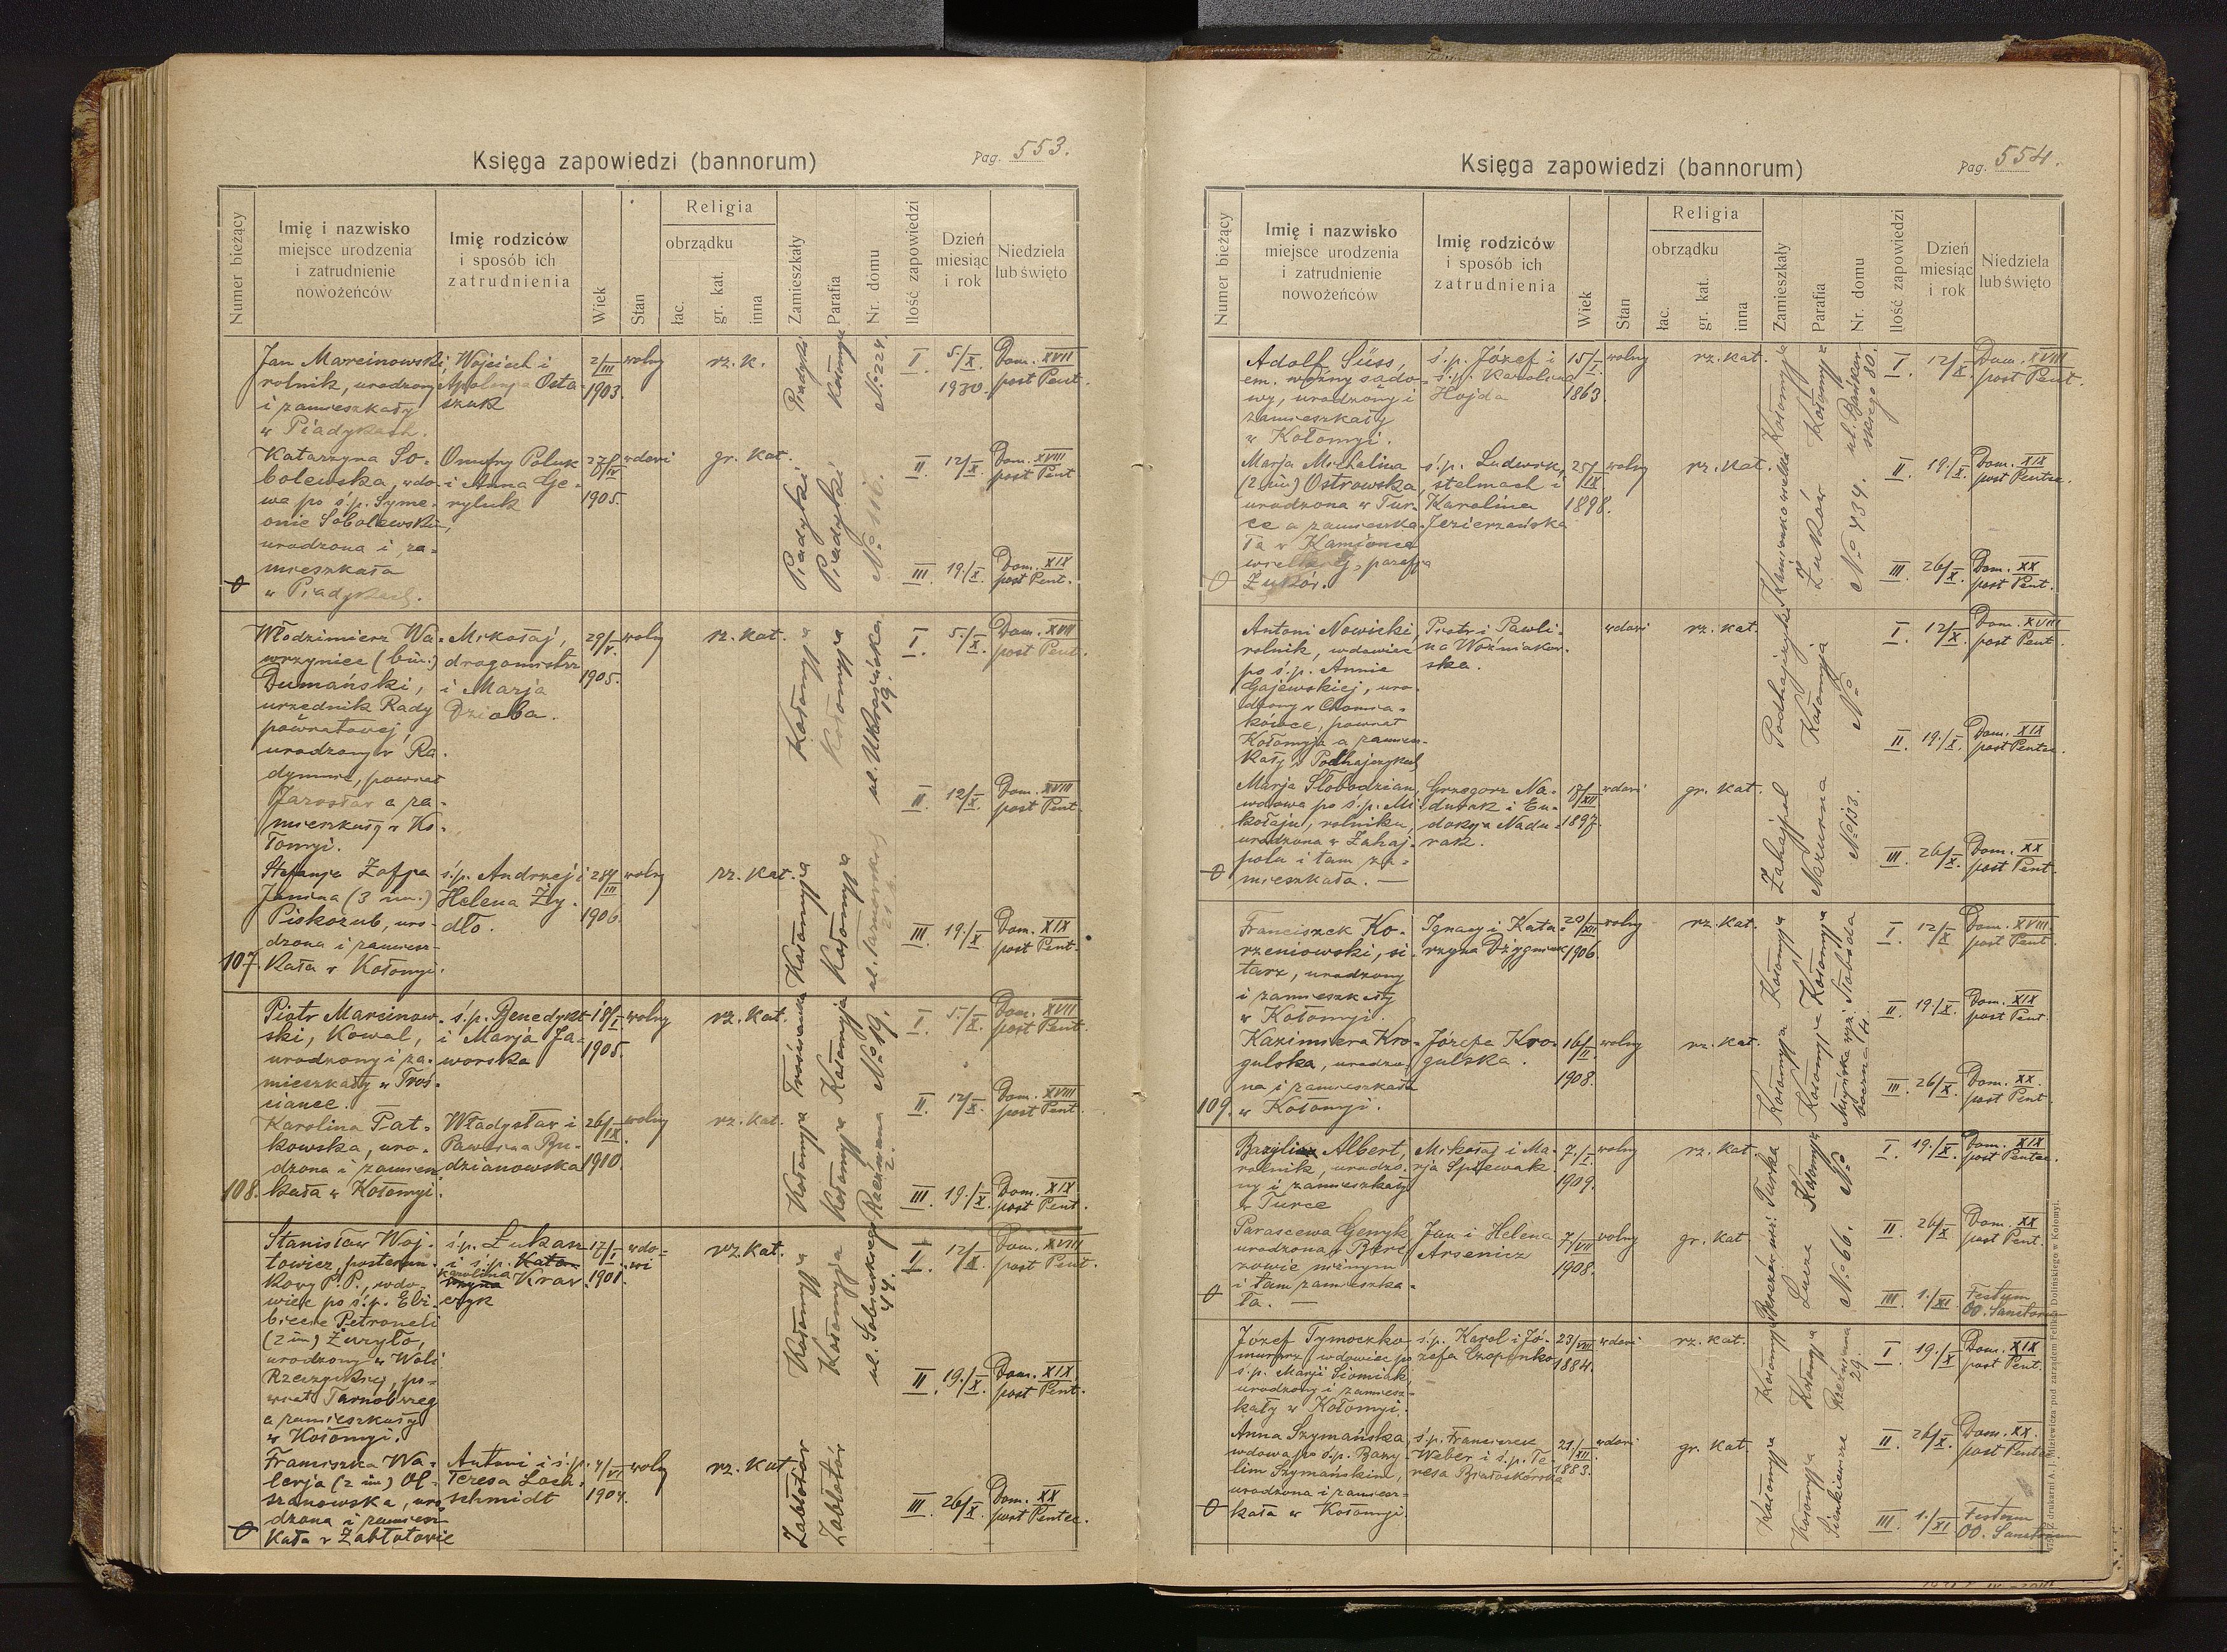 Księga zapowiedzi (bannorum)
Pag. 553.
Numer bieżący
Imię i nazwisko
miejsce urodzenia
i zatrudnienie
nowożeńców
Imię rodziców
i sposób ich
zatrudnienia
Wiek
Stan
Religia
obrządku
łac.
gr. kat.
inna
Zamieszkały
Parafia
Nr. domu
Ilość zapowiedzi
Dzień
miesiąc
i rok
Niedziela
lub święto
Jan Marcinowski,
rolnik, urodzony
i zamieszkały
w Piadykach.
Wojciech i
Apolonja Osta-
szuk
2/III
1903.
wolny
rz. k.
Piadyki
Kołomyja
No 224.
I. 5./X. 1930. Dom. XVII post Pent.
Katarzyna So-
bolewska, wdo-
wa po ś.p. Syme-
onie Sobolewskim,
urodzona i za-
mieszkała
w Piadykach.
Onufry Poluk
i Anna Ge-
ryluk
1905.
gr. kat.
Piadyki
Piadyki
II 12/X. Dom. XVIII post Pent
III. 19./X. Dom. XIX post Pent.
Włodzimierz Wa-
wrzyniec (2 im.)
Dumański,
urzędnik Rady
powiatowej,
urodzony w Ra-
dymnie, powiat
Jarosław a za-
mieszkały w Ko-
łomyi.
Mikołaj,
dragomistrz
i Marja
Dzioba.
29/V.
1905.
wolny
rz. kat.
Kołomyja
Kołomyja
ul. Ukraińska 19.
I. 5./X. Dom. XVII post Pent.
II. 12/X. Dom. XVIII post Pent.
107.
Stefanja Zofja
Janina (3 im.)
Piskozub, uro-
dzona i zamiesz-
kała w Kołomyi.
ś.p. Andrzej i
Helena Ży-
dło.
1906.
wolny
rz. kat.
Kołomyja
Kołomyja
III. 19./X. Dom. XIX post Pent.
108.
Piotr Marcinow-
ski, kowal,
urodzony i za-
mieszkały w Troś-
ciance.
ś.p. Benedykt
i Marja Ja-
worska
18/I.
1905.
wolny
rz. kat.
Trościanka
Kołomyja
No 19.
I. 5./X. Dom. XVII post Pent.
Karolina Pat-
kowska, uro-
dzona i zamiesz-
kała w Kołomyi.
Władysław i
Pawlina Bu-
dzianowska
26/IX
1910.
wolny
rz. kat.
Kołomyja
Kołomyja
II. 12/X. Dom. XVIII post Pent
III. 19./X. Dom. XIX post Pent.
Stanisław Woj-
towicz, posterun-
kowy P.P., wdo-
wiec po ś.p. Elż-
biecie Petroneli
(2 im) Żuryło,
urodzony w Woli
Rzeczyckiej, po-
wiat Tarnobrzeg
a zamieszkały
w Kołomyi.
ś.p. Łukasz
i ś.p. Kata-
Karolina
rzyna Kraw-
czyk
17/I.
1901.
wdo-
wi
rz. kat.
Kołomyja
Kołomyja
ul. Sobieskiego 44.
I. 12/X. Dom. XVIII post Pent.
II. 19./X. Dom. XIX post Pent.
Franciszka Wa-
lerja (2 im) Ol-
szanowska, uro-
dzona i zamiesz-
kała w Zabłotowie
Antoni i ś.p.
Teresa Losch-
schmidt
4/VI
1904.
wolny
rz. kat
Zabłotów
Zabłotów
III. 26/X. Dom. XX post Pentec.
Księga zapowiedzi (bannorum)
Pag. 554.
Numer bieżący
Imię i nazwisko
miejsce urodzenia
i zatrudnienie
nowożeńców
Imię rodziców
i sposób ich
zatrudnienia
Wiek
Stan
Religia
obrządku
łac.
gr. kat.
inna
Zamieszkały
Parafia
Nr. domu
Ilość zapowiedzi
Dzień
miesiąc
i rok
Niedziela
lub święto
Adolf Süss,
em. woźny sądo-
wy, urodzony i
zamieszkały
w Kołomyi.
ś.p. Józef i
ś.p. Karolina
Hojda
15/I.
1863.
wolny
rz. kat.
Kołomyja
Kołomyja
I. 12/X. Dom. XVIII post Pent.
Marja Michalina
(2 im) Ostrowska,
urodzona w Tur-
ce a zamieszka-
ła w Kamionce
wielkiej, parafja
Żuków.
ś.p. Ludwik,
stelmach i
Karolina
Jezierzańska
25/IX
1898.
wolny
rz. kat.
Kamionka wielka
Żuków
No 434.
II. 19./X. Dom. XIX post Pentec.
III. 26/X. Dom. XX post Pent.
Antoni Nowicki,
rolnik, wdowiec
po ś.p. Annie
Gajewskiej, uro-
dzony w Chomia-
kówce, powiat
Kołomyja a zamiesz-
kały w Podhajczykach
Piotr i Pawli-
na Woźniakow-
ska.
wdowi
rz. kat.
Podhajczyki
Kołomyja
No
I. 12/X Dom. XVIII post Pent.
II. 19./X. Dom. XIX post Pentec.
Marja Słobodzian,
wdowa po ś.p. Mi-
kołaju, rolniku,
urodzona w Zahaj-
polu i tam za-
mieszkała. —
Grzegorz Na-
durak i Eu-
dokja Nadu-
rak.
18/XII
1897.
wdowi
gr. kat.
Zahajpol
Nazurna
No 133.
III. 26/X. Dom. XX post Pent.
109.
Franciszek Ko-
rzeniowski, si-
tarz, urodzony
i zamieszkały
w Kołomyi.
Ignacy i Kata-
1906.
wolny
rz. kat.
Kołomyja
Kołomyja
I. 12/X Dom. XVIII post Pent.
Kazimiera Kro-
gulska, urodzo-
na i zamieszkała
w Kołomyi.
Józefa Kro-
gulska.
16/II.
1908.
wolny
rz. kat.
Kołomyja
Kołomyja
II. 19./X. Dom. XIX post Pent.
III. 26/X. Dom. XX. post Pent.
Albert,
rolnik, urodzo-
ny i zamieszkały
w Turce
Mikołaj i Ma-
rja Śpiewak.
7./I
1909.
wolny
rz. kat.
Turka
Kołomyja
No
I. 19./X. Dom. XIX post Pentec.
Parascewa Genyk
urodzona w Bere-
zowie niżnym
i tam zamieszka-
ła. —
Jan i Helena
Arsenicz
7/VII
1908.
wolny
gr. kat
No 66.
II. 26/X. Dom. XX post Pent.
III. 1./XI Festum OO. Sanctorum
Józef Tymoczko
murarz, wdowiec po
ś.p. Marji Siomiak,
urodzony i zamiesz-
kały w Kołomyi.
ś.p. Karol i Jó-
zefa Czoponko
23/VIII
1884.
wdowi
rz. kat.
Kołomyja
Kołomyja
29.
I. 19./X Dom. XIX post Pent.
Anna Szymańska,
wdowa po ś.p. Bazy-
lim Szymańskim,
urodzona i zamiesz-
kała w Kołomyi
ś.p. Franciszek
Weber i ś.p. Te-
resa Białoskórska
21./XII.
1883.
wdowi
gr. kat.
Kołomyja
Kołomyja
Sienkiewicza
II. 26/X. Dom. XX. post Pentec
III. 1./XI. Festum OO. Sanctorum
Z drukarni A. J. Miziewicza pod zarządem Feliksa Dolińskiego w Kołomyi.